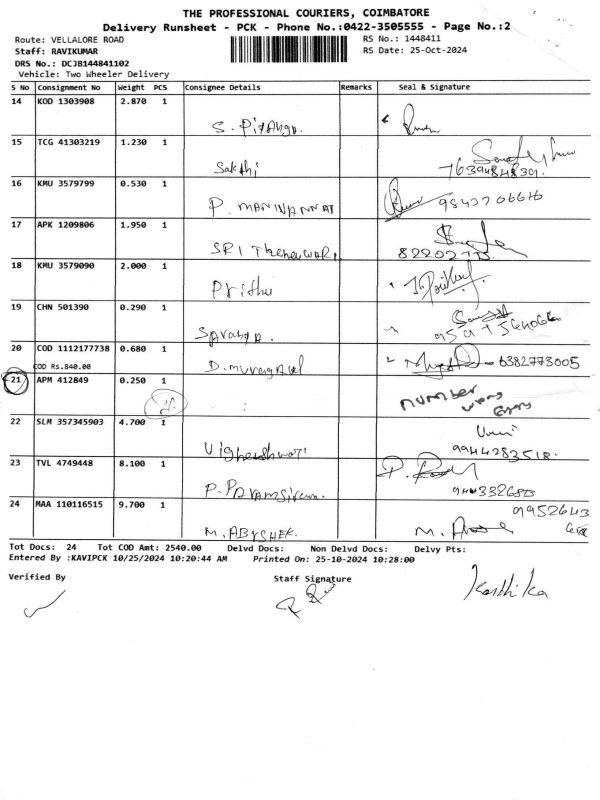 THE PROFESSIONAL COURIERS, COIMBATORE
Delivery Runsheet - PCK - Phone No.:0422-3505555 - Page No.:2
Route: VELLALORE ROAD
RS No.: 1448411
Staff: RAVIKUMAR
RS Date: 25-Oct-2024
DRS No.: DCJB144841102
Vehicle: Two Wheeler Delivery
S No Consignment No Weight PCS Consignee Details Remarks Seal & Signature
14 KOD 1303908 2.870 1
15 TCG 41303219 1.230 1
Sakthi
16 KMU 3579799 0.530 1
P. MANIVANNAT 9842706676
17 APK 1209806 1.950 1
SRI
18 KMU 3579090 2.000 1
Prithu
19 CHN 501390 0.290 1
20 COD 1112177738 0.680 1
COD Rs.840.00
D. murugavel 6382773005
21 APM 412849 0.250 1
number
wrong
22 SLM 357345903 4.700 1
9944283518.
23 TVL 4749448 8.100 1
24 MAA 110116515 9.700 1
M. ABYSHEK. M.
Tot Docs: 24 Tot COD Amt: 2540.00 Delvd Docs: Non Delvd Docs: Delvy Pts:
Entered By :KAVIPCK 10/25/2024 10:20:44 AM Printed On: 25-10-2024 10:28:00
Verified By Staff Signature
Karthika